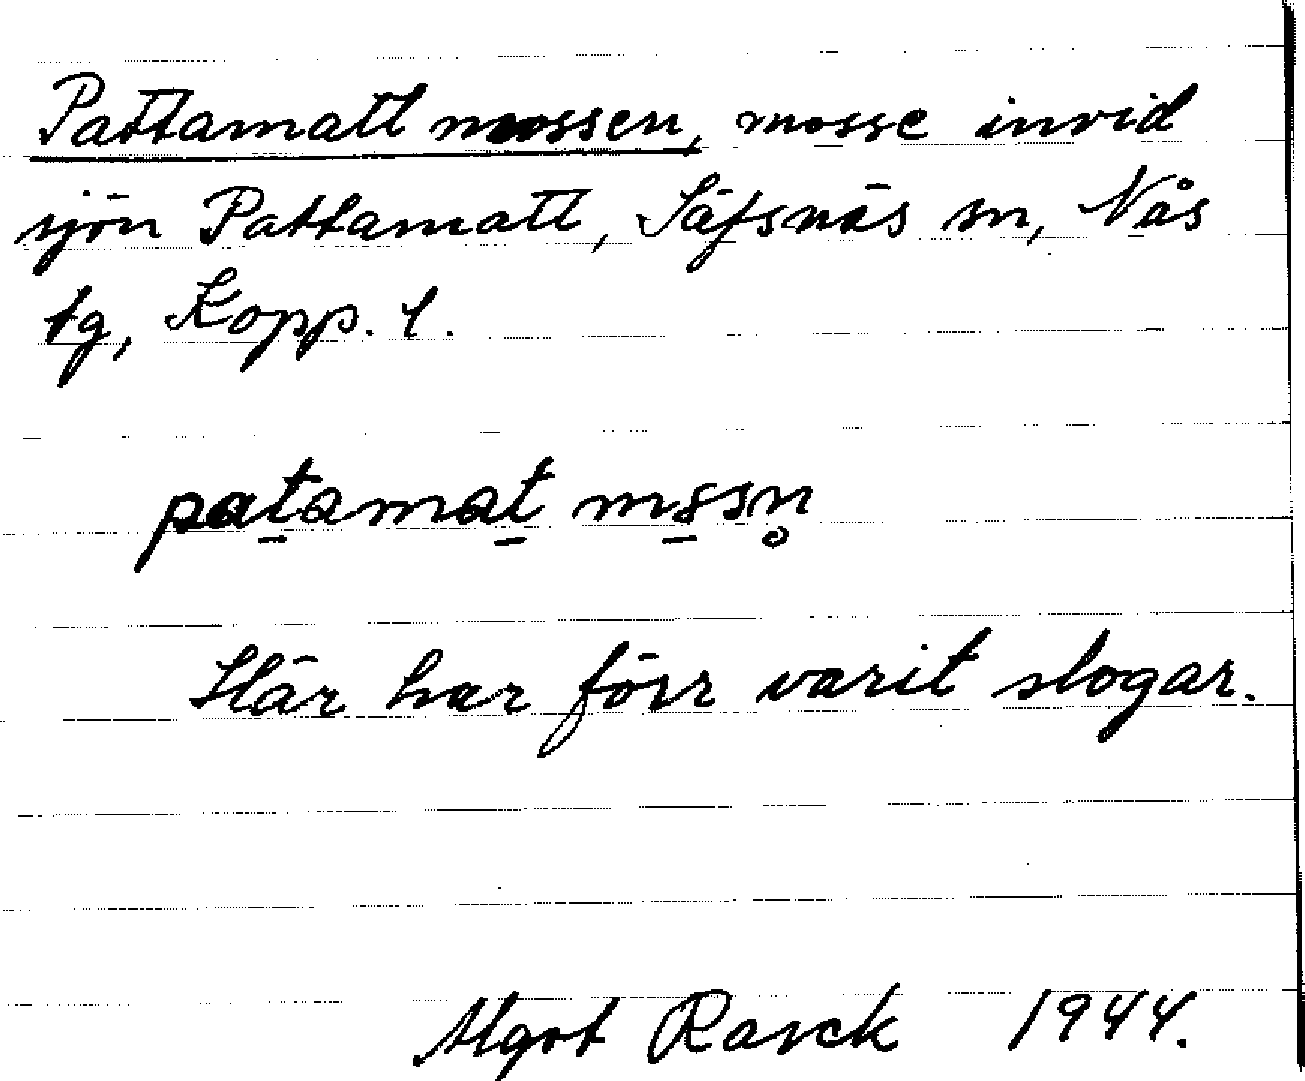 Pattamatt mossen, mosse invid
sjön Pattamatt, Säfsnäs sn, Nås
tg, Kopp. l.
patamat
Här har förr varit slogar.
Algot Rasck 1944.